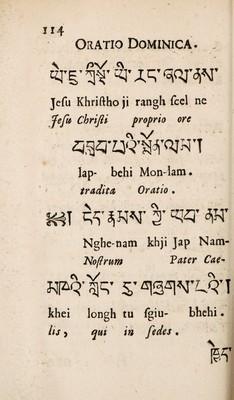 114
ORATIO DOMINICA.
ཡེ་ཇུ་ཀྲིསྟོ་ཡི་རང་ཞལ་ནས་
Jeſu Khriſtho ji rangh ſcel ne
Jeſu Chriſti proprio ore
སྨོན་ལམ།
lap- behi Mon-lam.
tradita Oratio.
ངེད་རྣམས་ཀྱི་ཡབ་ནམ་
Nghe-nam khji Jap Nam-
Noſtrum Pater Cae-
མཁའི་ཀློང་དུ་
khei longh tu ſgiu- bhehi.
lis, qui in ſedes.
ཁྱེད་